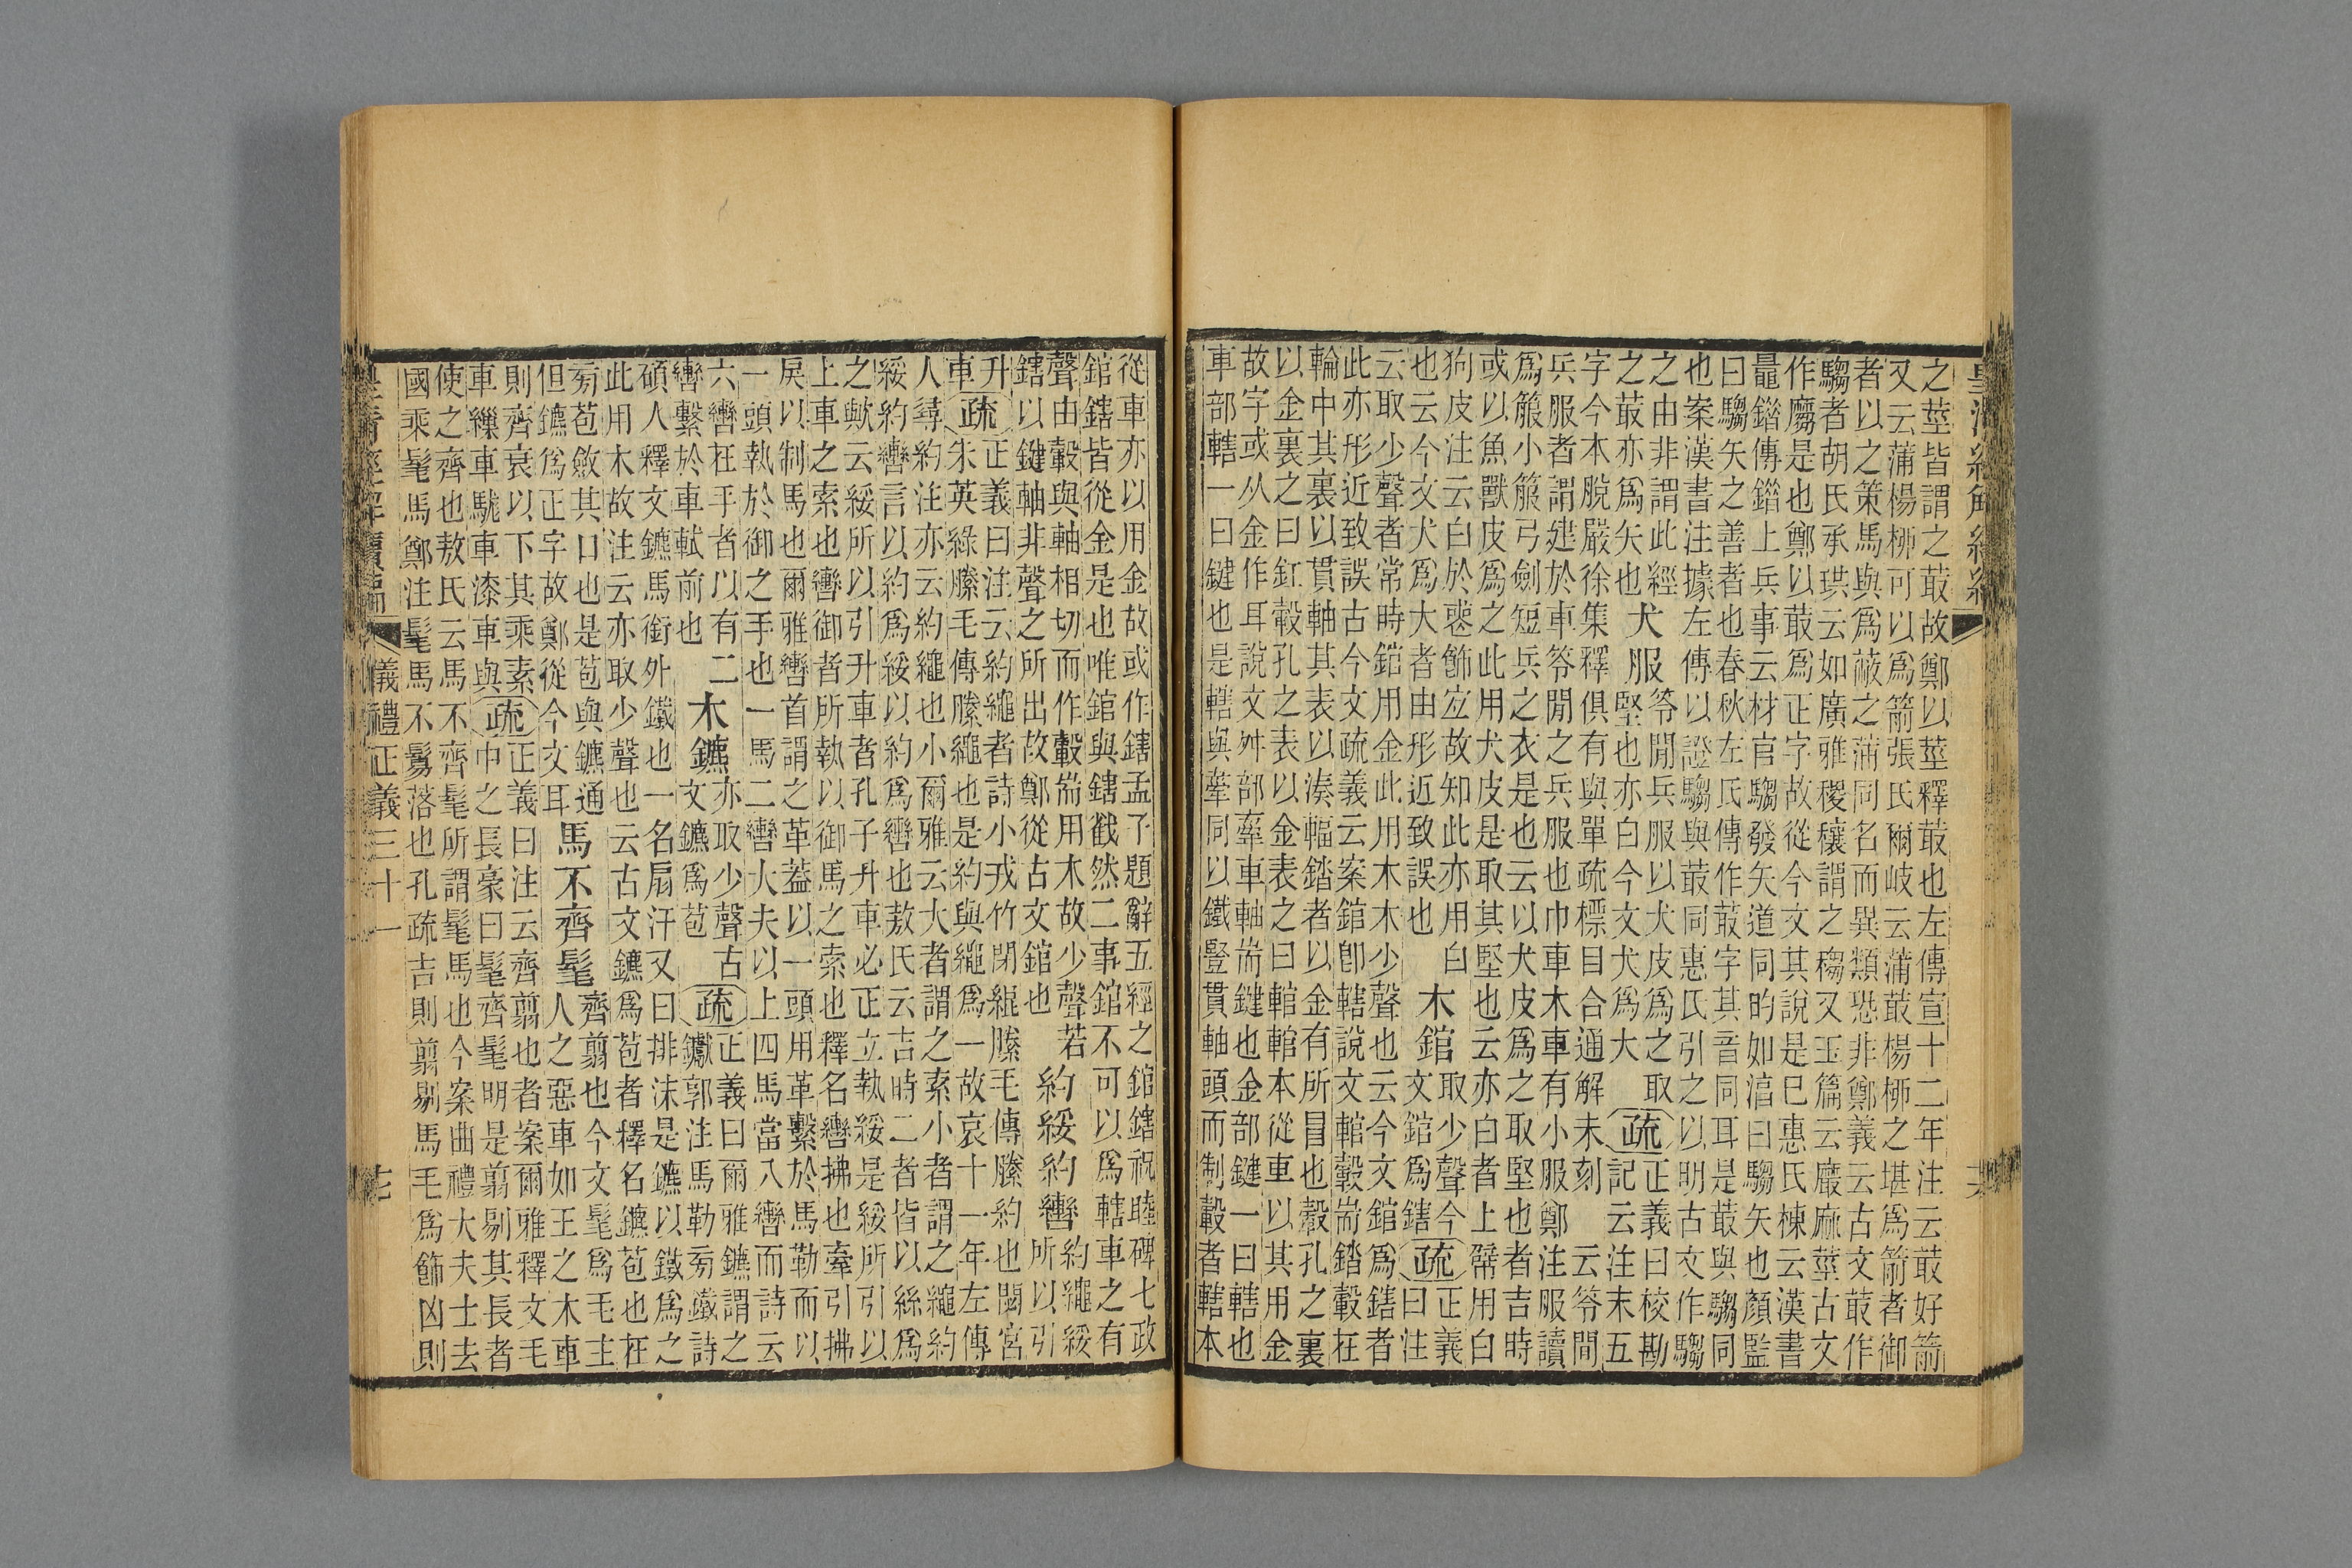 皇清經解續編
之莖皆謂之菆故鄭以莖釋菆也左傳宣十二年注云菆好箭
又云蒲楊柳可以爲箭張氏爾岐云蒲菆楊柳之堪爲箭者御
者以之策馬與爲蔽之蒲同名而異類恐非鄭義云古文菆作
騶者胡氏承珙云如廣雅稷穰謂之䅳又玉篇云黀麻莖古文
作䕍是也鄭以菆爲正字故從今文其說是巳惠氏棟云漢書
鼂錯傳錯上兵事云材官騶發矢道同的如湻曰騶矢也顏監
曰騶矢之善者也春秋左氏傳作菆字其音同耳是菆與騶同
也案漢書注據左傳以證騶與菆同惠氏引之以明古文作騶
之由非謂此經
之菆亦爲矢也
犬服
笭閒兵服以犬皮爲之取
堅也亦白今文犬爲大
疏
正義曰校勘
記云注末五
字今本脫嚴徐集釋俱有與單疏標目合通解未刻 云笭間
兵服者謂建於車笭閒之兵服也巾車木車有小服鄭注服讀
爲箙小箙弓劍短兵之衣是也云以犬皮爲之取堅也者吉時
或以魚獸皮爲之此用犬皮是取其堅也云亦白者上幦用白
狗皮注云白於喪飾宐故知此亦用白
也云今文犬爲大者由形近致誤也
木錧
取少聲今
文錧爲鎋
疏
正義
曰注
云取少聲者常時錧用金此用木少聲也云今文錧爲鎋者
此亦形近致誤古今文疏義云案錧卽轄說文輨轂耑錔轂在
輪中其裏以貫軸其表以湊輻錔者以金有所冒也轂孔之裏
以金裏之曰釭轂孔之表以金表之曰輨輨本從車以其用金
故字或从金作耳說文舛部舝車軸耑鍵也金部鍵一曰轄也
車部轄一曰鍵也是轄與舝同以鐵豎貫軸頭而制轂者轄本
從車亦以用金故或作鎋孟子題辭五經之錧鎋祝睦碑七政
錧鎋皆從金是也唯錧與鎋截然二事錧不可以爲轄車之有
聲由轂與軸相切而作轂耑用木故少聲若
鎋以鍵軸非聲之所出故鄭從古文錧也
約綏約轡
約繩綏
所以引
升
車
疏
正義曰注云約繩者詩小戎竹閉緄縢毛傳縢約也閟宮
朱英綠縢毛傳縢繩也是約與繩爲一故哀十一年左傳
人尋約注亦云約繩也小爾雅云大者謂之索小者謂之繩約
綏約轡言以約爲綏以約爲轡也敖氏云吉時二者皆以絲爲
之歟云綏所以引升車者孔子升車必正立執綏是綏所引以
上車之索也轡御者所執以御馬之索也釋名轡拂也牽引拂
戾以制馬也爾雅轡首謂之革葢以一頭用革繫於馬勒而以
一頭執於御之手也一馬二轡大夫以上四馬當八轡而詩云
六轡在手者以有二
轡繫於車軾前也
木鑣
亦取少聲古
文鑣爲苞
疏
正義曰爾雅鑣謂之
钀郭注馬勒旁鐵詩
碩人釋文鑣馬銜外鐵也一名扇汗又曰排沫是鑣以鐵爲之
此用木故注云亦取少聲也云古文鑣爲苞者釋名鑣苞也在
旁苞斂其口也是苞與鑣通
但鑣爲正字故鄭從今文耳
馬不齊髦
齊翦也今文髦爲毛主
人之惡車如王之木車
則齊衰以下其乘素
車繅車駹車漆車與
疏
正義曰注云齊翦也者案爾雅釋文毛
中之長豪曰髦齊髦明是翦剔其長者
使之齊也敖氏云馬不齊髦所謂髦馬也今案曲禮大夫士去
國乘髦馬鄭注髦馬不鬄落也孔疏吉則翦剔馬毛爲飾凶則
皇清經解續編
儀禮正義三十一